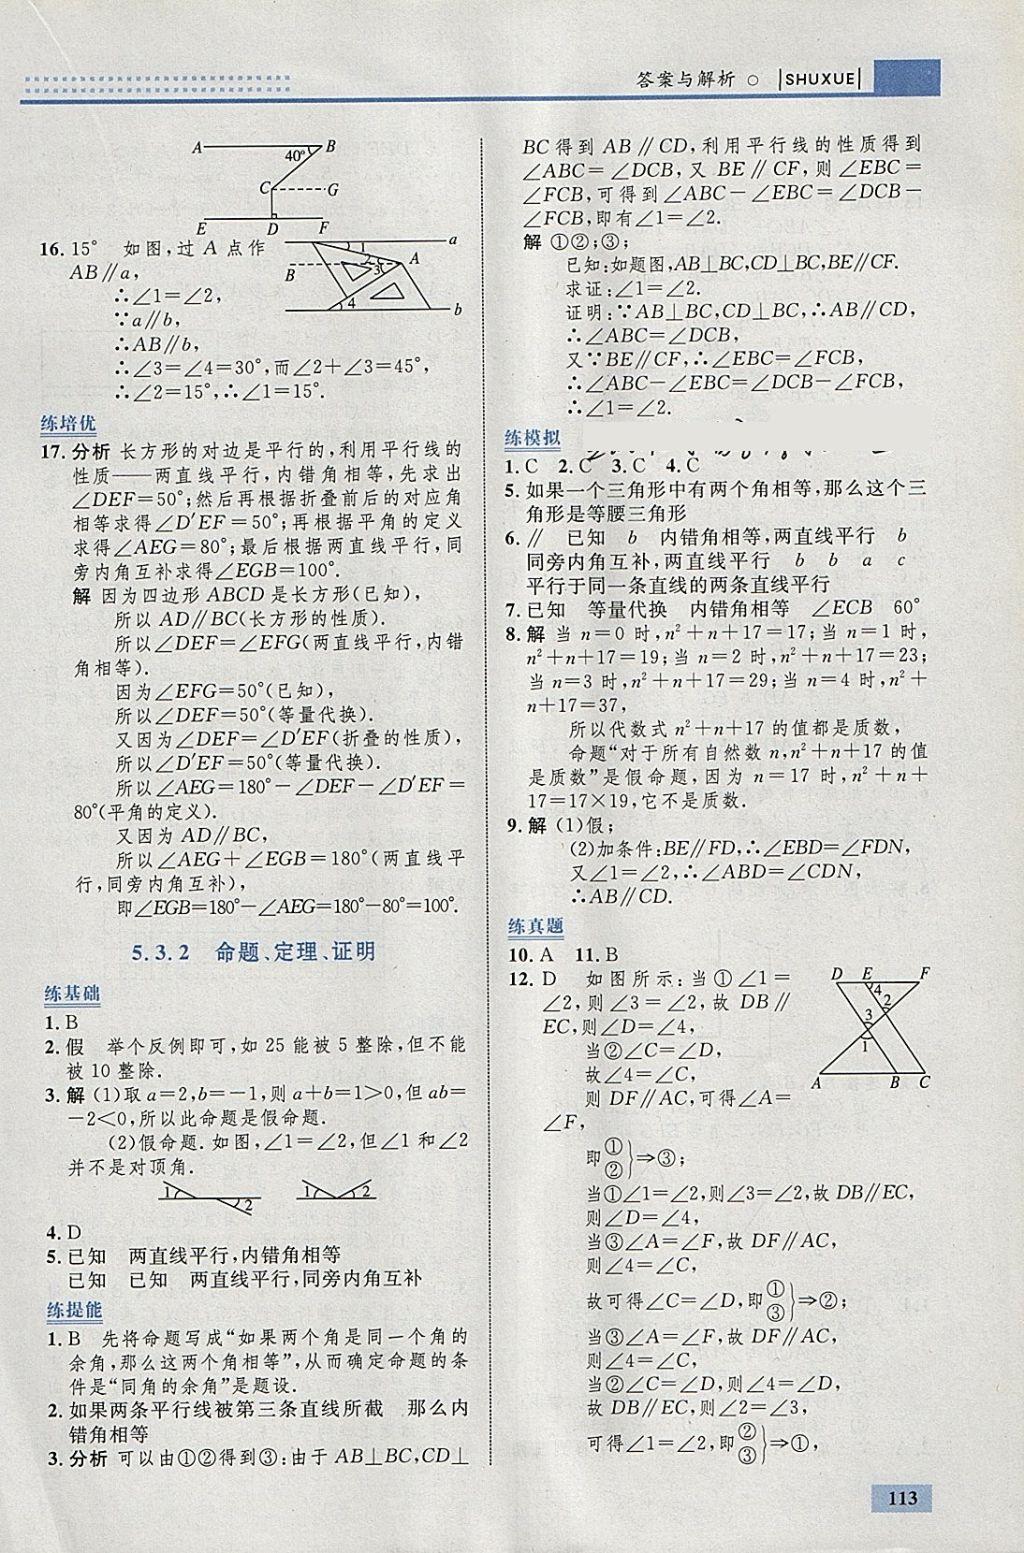 答案与解析 ○ |SHUXUE|
A B 40° C G E D F
16. 15° 如图,过 A 点作
AB∥a,
∴∠1=∠2,
∵a∥b,
∴AB∥b,
∴∠3=∠4=30°,而∠2+∠3=45°,
∴∠2=15°,∴∠1=15°.
a A B 3 4 b
练培优
17. 分析 长方形的对边是平行的,利用平行线的
性质——两直线平行,内错角相等,先求出
∠DEF=50°;然后再根据折叠前后的对应角
相等求得∠D′EF=50°;再根据平角的定义
求得∠AEG=80°;最后根据两直线平行,同
旁内角互补求得∠EGB=100°.
解 因为四边形 ABCD 是长方形(已知),
所以 AD∥BC(长方形的性质).
所以∠DEF=∠EFG(两直线平行,内错
角相等).
因为∠EFG=50°(已知),
所以∠DEF=50°(等量代换).
又因为∠DEF=∠D′EF(折叠的性质),
所以∠D′EF=50°(等量代换).
所以∠AEG=180°-∠DEF-∠D′EF=
80°(平角的定义).
又因为 AD∥BC,
所以∠AEG+∠EGB=180°(两直线平
行,同旁内角互补),
即∠EGB=180°-∠AEG=180°-80°=100°.
5.3.2 命题、定理、证明
练基础
1. B
2. 假 举个反例即可,如 25 能被 5 整除,但不能
被 10 整除.
3. 解 (1)取 a=2,b=-1,则 a+b=1>0,但 ab=
-2<0,所以此命题是假命题.
(2)假命题.如图,∠1=∠2,但∠1 和∠2
并不是对顶角.
1 2 1 2
4. D
5. 已知 两直线平行,内错角相等
已知 已知 两直线平行,同旁内角互补
练提能
1. B 先将命题写成“如果两个角是同一个角的
余角,那么这两个角相等”,从而确定命题的条
件是“同角的余角”是题设.
2. 如果两条平行线被第三条直线所截 那么内
错角相等
3. 分析 可以由①②得到③:由于 AB⊥BC,CD⊥
BC 得到 AB∥CD,利用平行线的性质得到
∠ABC=∠DCB,又 BE∥CF,则∠EBC=
∠FCB,可得到∠ABC-∠EBC=∠DCB-
∠FCB,即有∠1=∠2.
解 ①②;③;
已知:如题图,AB⊥BC,CD⊥BC,BE∥CF.
求证:∠1=∠2.
证明:∵AB⊥BC,CD⊥BC,∴AB∥CD,
∴∠ABC=∠DCB,
又∵BE∥CF,∴∠EBC=∠FCB,
∴∠ABC-∠EBC=∠DCB-∠FCB,
∴∠1=∠2.
练模拟
1. C 2. C 3. C 4. C
5. 如果一个三角形中有两个角相等,那么这个三
角形是等腰三角形
6. ∥ 已知 b 内错角相等,两直线平行 b
同旁内角互补,两直线平行 b b a c
平行于同一条直线的两条直线平行
7. 已知 等量代换 内错角相等 ∠ECB 60°
8. 解 当 n=0 时,n²+n+17=17;当 n=1 时,
n²+n+17=19;当 n=2 时,n²+n+17=23;
当 n=3 时,n²+n+17=29;当 n=4 时,n²+
n+17=37,
所以代数式 n²+n+17 的值都是质数,
命题“对于所有自然数 n,n²+n+17 的值
是质数”是假命题,因为 n=17 时,n²+n+
17=17×19,它不是质数.
9. 解 (1)假;
(2)加条件:BE∥FD,∴∠EBD=∠FDN,
又∠1=∠2,∴∠ABD=∠CDN,
∴AB∥CD.
练真题
10. A 11. B
12. D 如图所示:当①∠1=
∠2,则∠3=∠2,故 DB∥
EC,则∠D=∠4,
当②∠C=∠D,
故∠4=∠C,
则 DF∥AC,可得∠A=
∠F,
D E F 4 2 3 1 A B C
即①②}⇒③;
当①∠1=∠2,则∠3=∠2,故 DB∥EC,
则∠D=∠4,
当③∠A=∠F,故 DF∥AC,
则∠4=∠C,
故可得∠C=∠D,即①③}⇒②;
当③∠A=∠F,故 DF∥AC,
则∠4=∠C,
当②∠C=∠D,则∠4=∠D,
故 DB∥EC,则∠2=∠3,
可得∠1=∠2,即②③}⇒①,
113